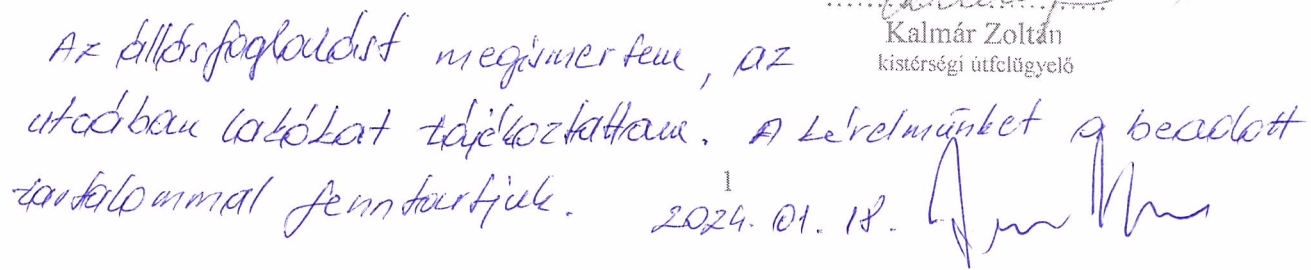 Kalmár Zoltán
kistérségi útfelügyelő
Az állásfoglalást megismertem, az
utcában lakókat tájékoztattam. A kérelmünket a beadott
tartalommal fenntartjuk. 2024. 01. 18.
1